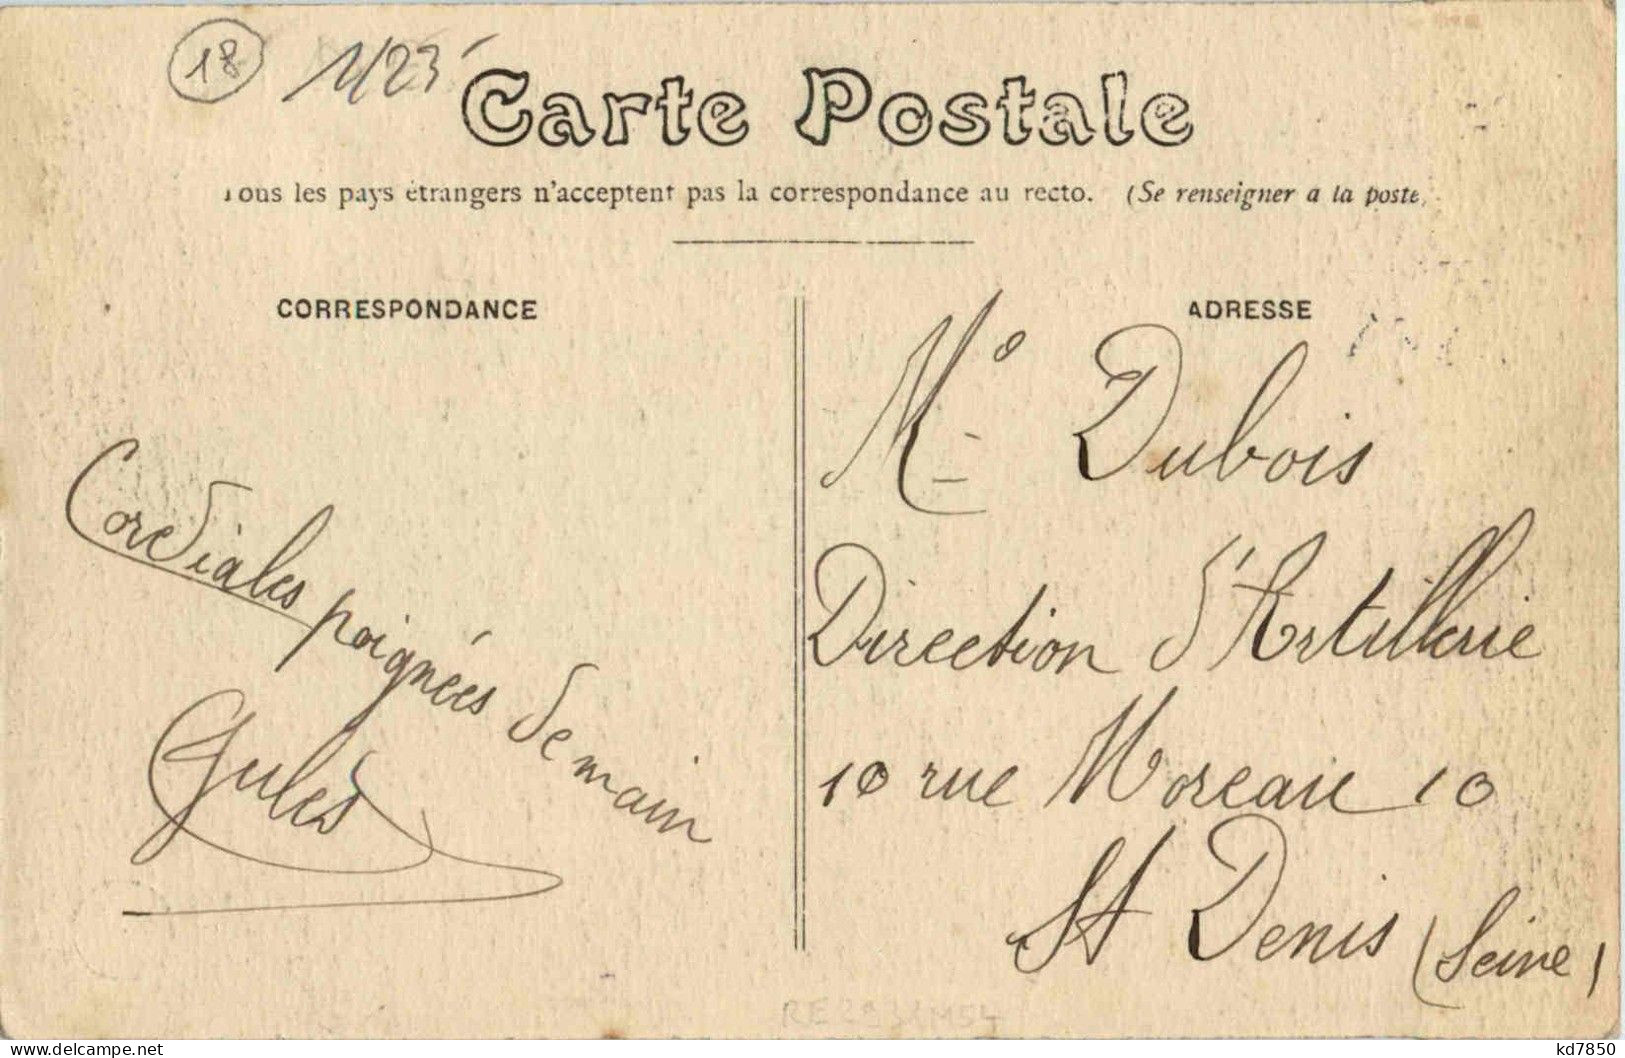 18
Carte Postale
Tous les pays étrangers n'acceptent pas la correspondance au recto. (Se renseigner a la poste)
CORRESPONDANCE
Cordiales poignées de main
Jules
ADRESSE
Mr Dubois
Direction d'Artillerie
10 rue Moreau 10
St Denis (Seine)
kd7850